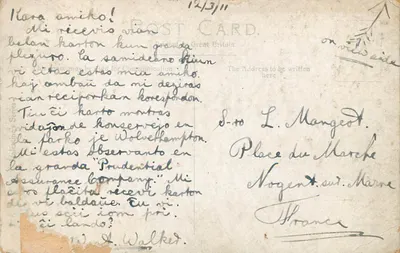 12/3/11
Kara amiko!
POST CARD.
Mi recevis vian
belan karton kun granda
plezuro. La samideano kiun
vi citas estas mia amiko.
kaj ambaŭ da mi deziras
vian reciprokan korespondon.
Tiu ĉi karto montras
de konservejo en
la parko je Wolverhampton.
Mi estas observanto en
la granda "Prudential"
Assurance Company. Mi
recevi karton
de vi baldaŭ. Ĉu vi
iom pri
ĉi lando?
A. Walker.
on view side
The Address to be written
here
S-ro L. Mangeot,
Place du Marché
Nogent-sur-Marne
France